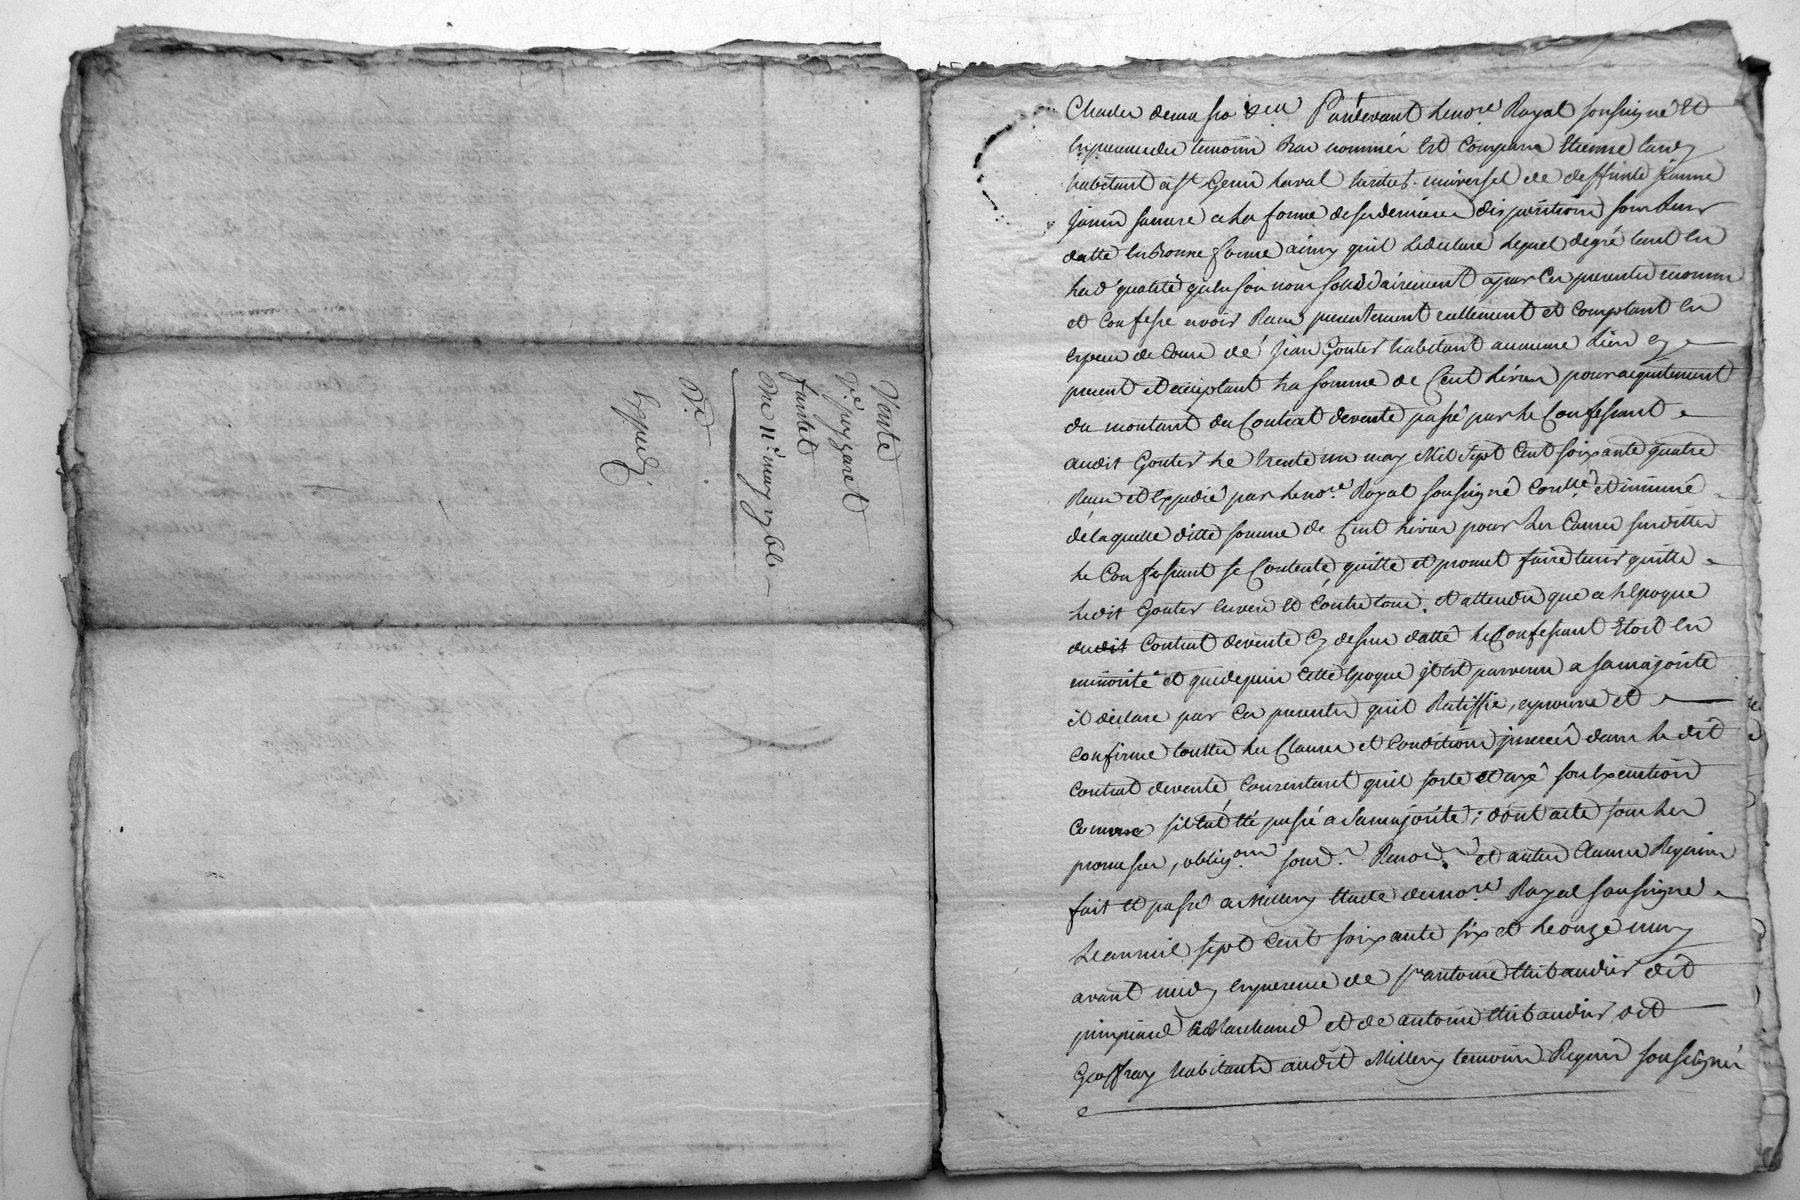 Vente
Ve puzzaret
Du 11e may 1766
Expedié
Pardevant le nore Royal soussigné et
en presence des temoins Bas nommés est comparu Etienne
habitant a st Genis Laval heritier universel de deffunte jeanne
a la forme de ses dernieres dispositions sous leur
datte en Bonne forme ainsy quil le declare lequel de gré tant en
lad qualité qu'en son nom solidairement a par ces presentes
et Confessé avoir Receu presentement reellement et comptant en
especes de Cours de Jean Gonter habitant au meme lieu cy
present et acceptant la somme de Cent livres pour acquittement
du montant du Contrat de vente passé par le Confessant
audit Gonter le trente un may Mil Sept Cent soixante quatre
Receu et Expedié par le nore Royal soussigné Conttlé et insinué
de laquelle ditte somme de Cent livres pour les Causes susdittes
le Confessant se Contente quitte et promet faire tenir quitte
ledit Gonter envers et Contre tous, et attendu que a l'Epoque
dudit Contrat de vente cy dessus datté le Confessant Etoit en
minorité et que depuis cette Epoque il est parvenu a sa majorité
il declare par ces presentes quil Ratiffie, aprouve et
confirme touttes les Clauses et Conditions inserées dans le dit
Contrat de vente Consentant quil sorte et aye son Execution
Comme sil eut été passé a sa majorité; dont acte sous les
promesses, obligons soumons Renons et autres Clauses Requises
fait et passé a Millery Etude du nore Royal soussigné
lan mil sept Cent soixante six et le onze may
avant midy en presence de sr antoine thibaudier dit
Marchand et de antoine thibaudier dit
Geoffray habitants audit Millery temoins Requis soussignés